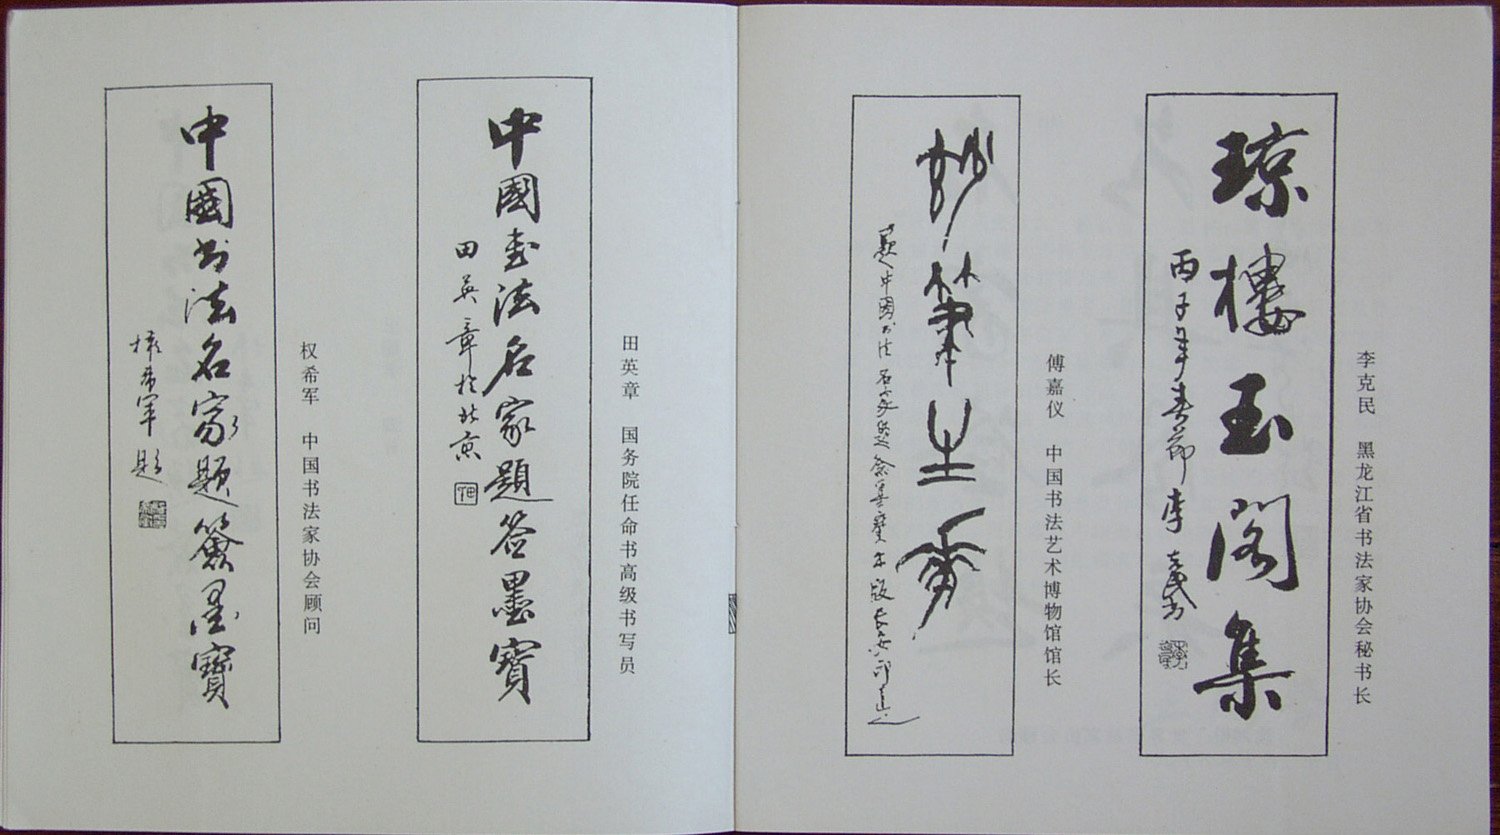 李克民 黑龙江省书法家协会秘书长
琼樓玉阁集
丙子年春節李克民书
傅嘉仪 中国书法艺术博物馆馆长
妙筆生香
题中国书法名家题签墨寶出版長安
田英章 国务院任命书高级书写员
中國书法名家題签墨寶
田英章於北京
权希军 中国书法家协会顾问
中國书法名家题簽墨寶
權希军题